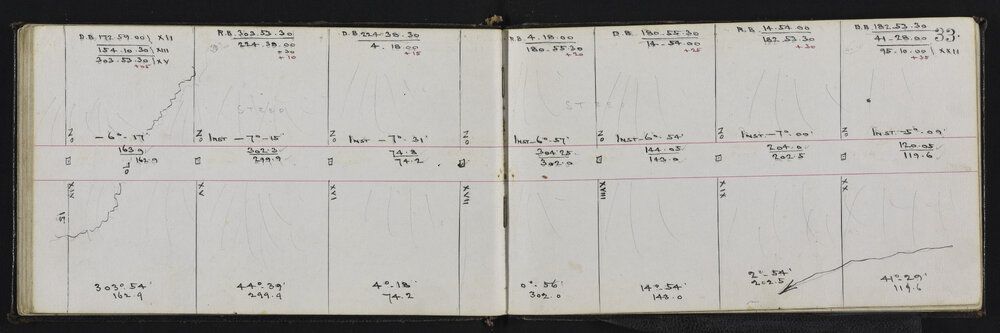 33
D.B. 172.59.00 } XII
154.10.30 } XIII
303.53.30 } XV
+05
R.B. 303.53.30
224.38.00
+30
+10
D.B. 224.38.30
4.18.00
+15
R.B. 4.18.00
180.55.30
+20
D.B. 180.55.30
14.54.00
+25
R.B. 14.54.00
182.53.30
+30
D.B. 182.53.30
41.28.00
95.10.00 } XXII
+35
STEEP
STEEP
No
-6°-17'
No
Inst -7°-15'
No
Inst -7°.31'
No
Inst -6°.57'
No
Inst -6°.54'
No
Inst -7°.00'
No
Inst -5°.09'
163.9
162.9
302.3
299.9
74.8
74.2
304.25
302.0
144.05
143.0
204.0
202.5
120.05
119.6
XIX
XV
XVI
XVII
XVIII
XIX
XX
303°.54'
162.9
44°-39'
299.9
4°-18'
74.2
0°-56'
302.0
14°-54'
143.0
2°-54'
202.5
41°-29'
119.6